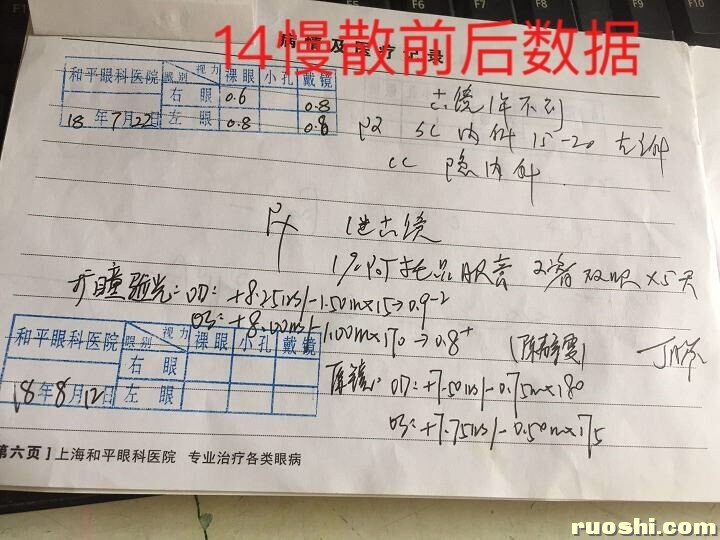 14慢散前后数据
病情及医疗记录
和平眼科医院 视力 眼别 裸眼 小孔 戴镜
右眼 0.6 0.8
18年7月22日 左眼 0.8 0.8
SC 内斜 15-20
CC 隐内斜
1% 眼膏 双眼 x5天
扩瞳验光: OD: +8.25DS/-1.50Dcx15→0.9-2
OS: +8.00DS/-1.00Dcx170→0.8+
和平眼科医院 视力 眼别 裸眼 小孔 戴镜
右眼
18年8月12日 左眼
原镜: OD: +7.50DS/-0.75Dcx180
OS: +7.75DS/-0.50Dcx175
第六页】上海和平眼科医院 专业治疗各类眼病
ruoshi.com